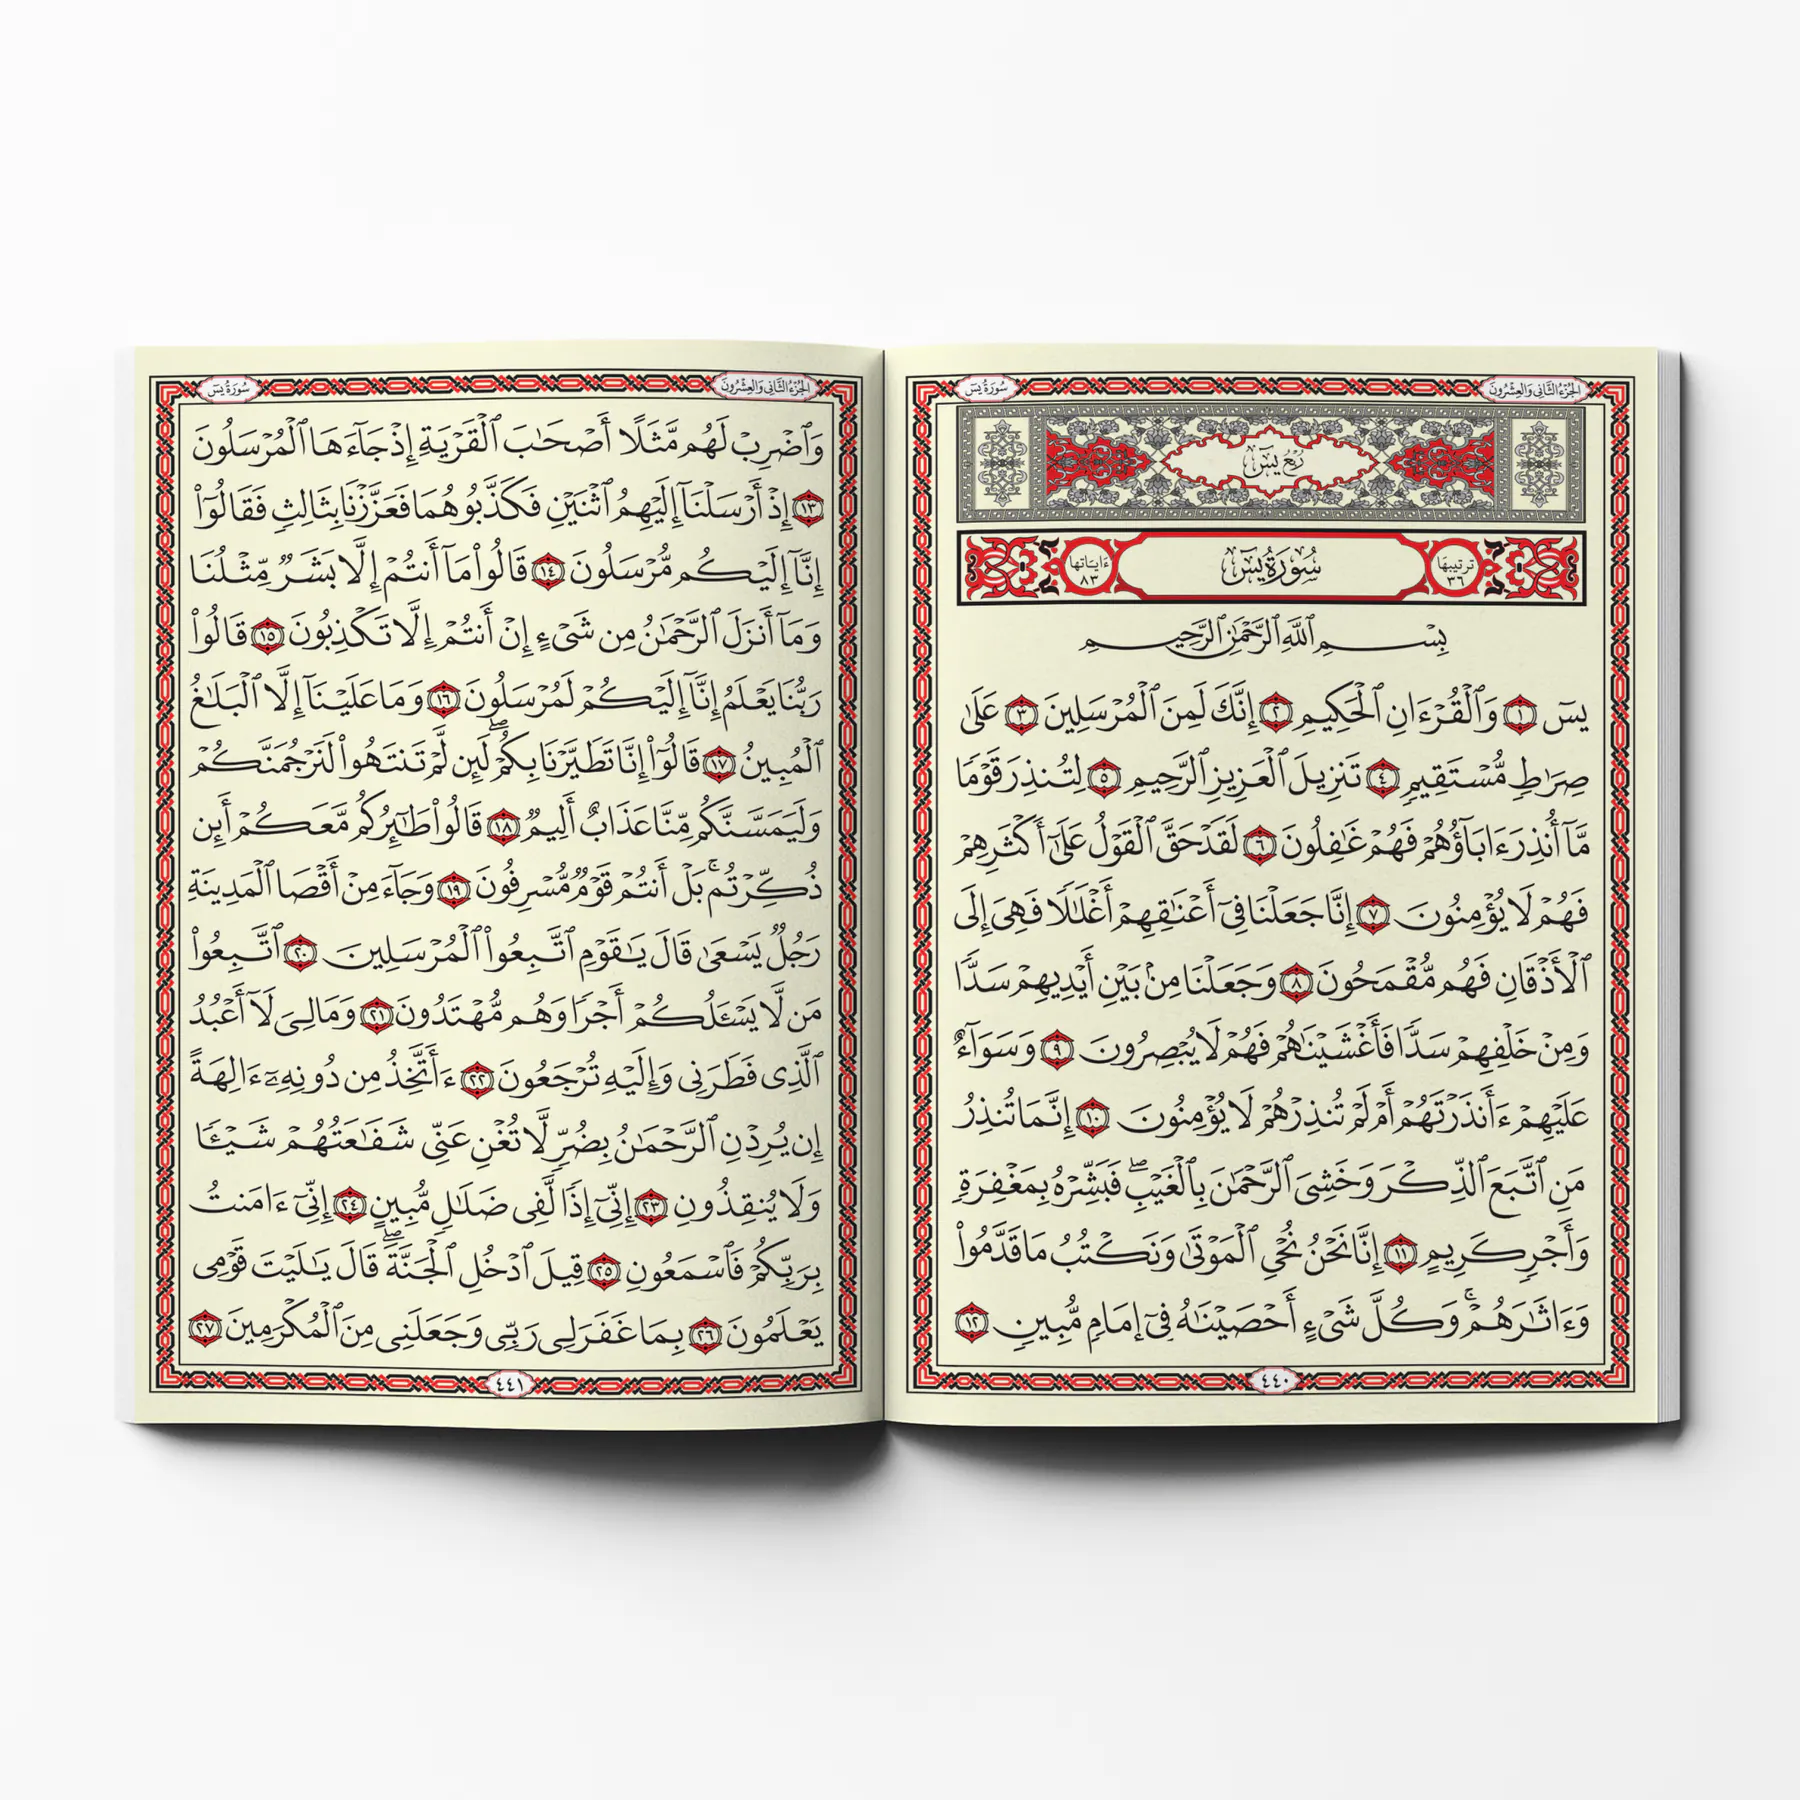 الجُزْءُ الثَّانِي وَالعِشْرُونَ
سُورَةُ يسٓ
رُبُعُ يسٓ
تَرتيبهَا ٣٦
سُورَةُ يسٓ
ءَايَاتها ٨٣
بِسْمِ ٱللَّهِ ٱلرَّحْمَٰنِ ٱلرَّحِيمِ
يسٓ ١ وَٱلْقُرْءَانِ ٱلْحَكِيمِ ٢ إِنَّكَ لَمِنَ ٱلْمُرْسَلِينَ ٣ عَلَىٰ
صِرَٰطٍ مُّسْتَقِيمٍ ٤ تَنزِيلَ ٱلْعَزِيزِ ٱلرَّحِيمِ ٥ لِتُنذِرَ قَوْمًا
مَّآ أُنذِرَ ءَابَآؤُهُمْ فَهُمْ غَٰفِلُونَ ٦ لَقَدْ حَقَّ ٱلْقَوْلُ عَلَىٰٓ أَكْثَرِهِمْ
فَهُمْ لَا يُؤْمِنُونَ ٧ إِنَّا جَعَلْنَا فِىٓ أَعْنَٰقِهِمْ أَغْلَٰلًا فَهِىَ إِلَى
ٱلْأَذْقَانِ فَهُم مُّقْمَحُونَ ٨ وَجَعَلْنَا مِنۢ بَيْنِ أَيْدِيهِمْ سَدًّا
وَمِنْ خَلْفِهِمْ سَدًّا فَأَغْشَيْنَٰهُمْ فَهُمْ لَا يُبْصِرُونَ ٩ وَسَوَآءٌ
عَلَيْهِمْ ءَأَنذَرْتَهُمْ أَمْ لَمْ تُنذِرْهُمْ لَا يُؤْمِنُونَ ١٠ إِنَّمَا تُنذِرُ
مَنِ ٱتَّبَعَ ٱلذِّكْرَ وَخَشِىَ ٱلرَّحْمَٰنَ بِٱلْغَيْبِ ۖ فَبَشِّرْهُ بِمَغْفِرَةٍ
وَأَجْرٍ كَرِيمٍ ١١ إِنَّا نَحْنُ نُحْىِ ٱلْمَوْتَىٰ وَنَكْتُبُ مَا قَدَّمُوا۟
وَءَاثَٰرَهُمْ ۚ وَكُلَّ شَىْءٍ أَحْصَيْنَٰهُ فِىٓ إِمَامٍ مُّبِينٍ ١٢
٤٤٠
الجُزْءُ الثَّانِي وَالعِشْرُونَ
سُورَةُ يسٓ
وَٱضْرِبْ لَهُم مَّثَلًا أَصْحَٰبَ ٱلْقَرْيَةِ إِذْ جَآءَهَا ٱلْمُرْسَلُونَ
١٣ إِذْ أَرْسَلْنَآ إِلَيْهِمُ ٱثْنَيْنِ فَكَذَّبُوهُمَا فَعَزَّزْنَا بِثَالِثٍ فَقَالُوٓا۟
إِنَّآ إِلَيْكُم مُّرْسَلُونَ ١٤ قَالُوا۟ مَآ أَنتُمْ إِلَّا بَشَرٌ مِّثْلُنَا
وَمَآ أَنزَلَ ٱلرَّحْمَٰنُ مِن شَىْءٍ إِنْ أَنتُمْ إِلَّا تَكْذِبُونَ ١٥ قَالُوا۟
رَبُّنَا يَعْلَمُ إِنَّآ إِلَيْكُمْ لَمُرْسَلُونَ ١٦ وَمَا عَلَيْنَآ إِلَّا ٱلْبَلَٰغُ
ٱلْمُبِينُ ١٧ قَالُوٓا۟ إِنَّا تَطَيَّرْنَا بِكُمْ ۖ لَئِن لَّمْ تَنتَهُوا۟ لَنَرْجُمَنَّكُمْ
وَلَيَمَسَّنَّكُم مِّنَّا عَذَابٌ أَلِيمٌ ١٨ قَالُوا۟ طَٰٓئِرُكُم مَّعَكُمْ أَئِن
ذُكِّرْتُم ۚ بَلْ أَنتُمْ قَوْمٌ مُّسْرِفُونَ ١٩ وَجَآءَ مِنْ أَقْصَا ٱلْمَدِينَةِ
رَجُلٌ يَسْعَىٰ قَالَ يَٰقَوْمِ ٱتَّبِعُوا۟ ٱلْمُرْسَلِينَ ٢٠ ٱتَّبِعُوا۟
مَن لَّا يَسْـَٔلُكُمْ أَجْرًا وَهُم مُّهْتَدُونَ ٢١ وَمَا لِىَ لَآ أَعْبُدُ
ٱلَّذِى فَطَرَنِى وَإِلَيْهِ تُرْجَعُونَ ٢٢ ءَأَتَّخِذُ مِن دُونِهِۦٓ ءَالِهَةً
إِن يُرِدْنِ ٱلرَّحْمَٰنُ بِضُرٍّ لَّا تُغْنِ عَنِّى شَفَٰعَتُهُمْ شَيْـًٔا
وَلَا يُنقِذُونِ ٢٣ إِنِّىٓ إِذًا لَّفِى ضَلَٰلٍ مُّبِينٍ ٢٤ إِنِّىٓ ءَامَنتُ
بِرَبِّكُمْ فَٱسْمَعُونِ ٢٥ قِيلَ ٱدْخُلِ ٱلْجَنَّةَ ۖ قَالَ يَٰلَيْتَ قَوْمِى
يَعْلَمُونَ ٢٦ بِمَا غَفَرَ لِى رَبِّى وَجَعَلَنِى مِنَ ٱلْمُكْرَمِينَ ٢٧
٤٤١